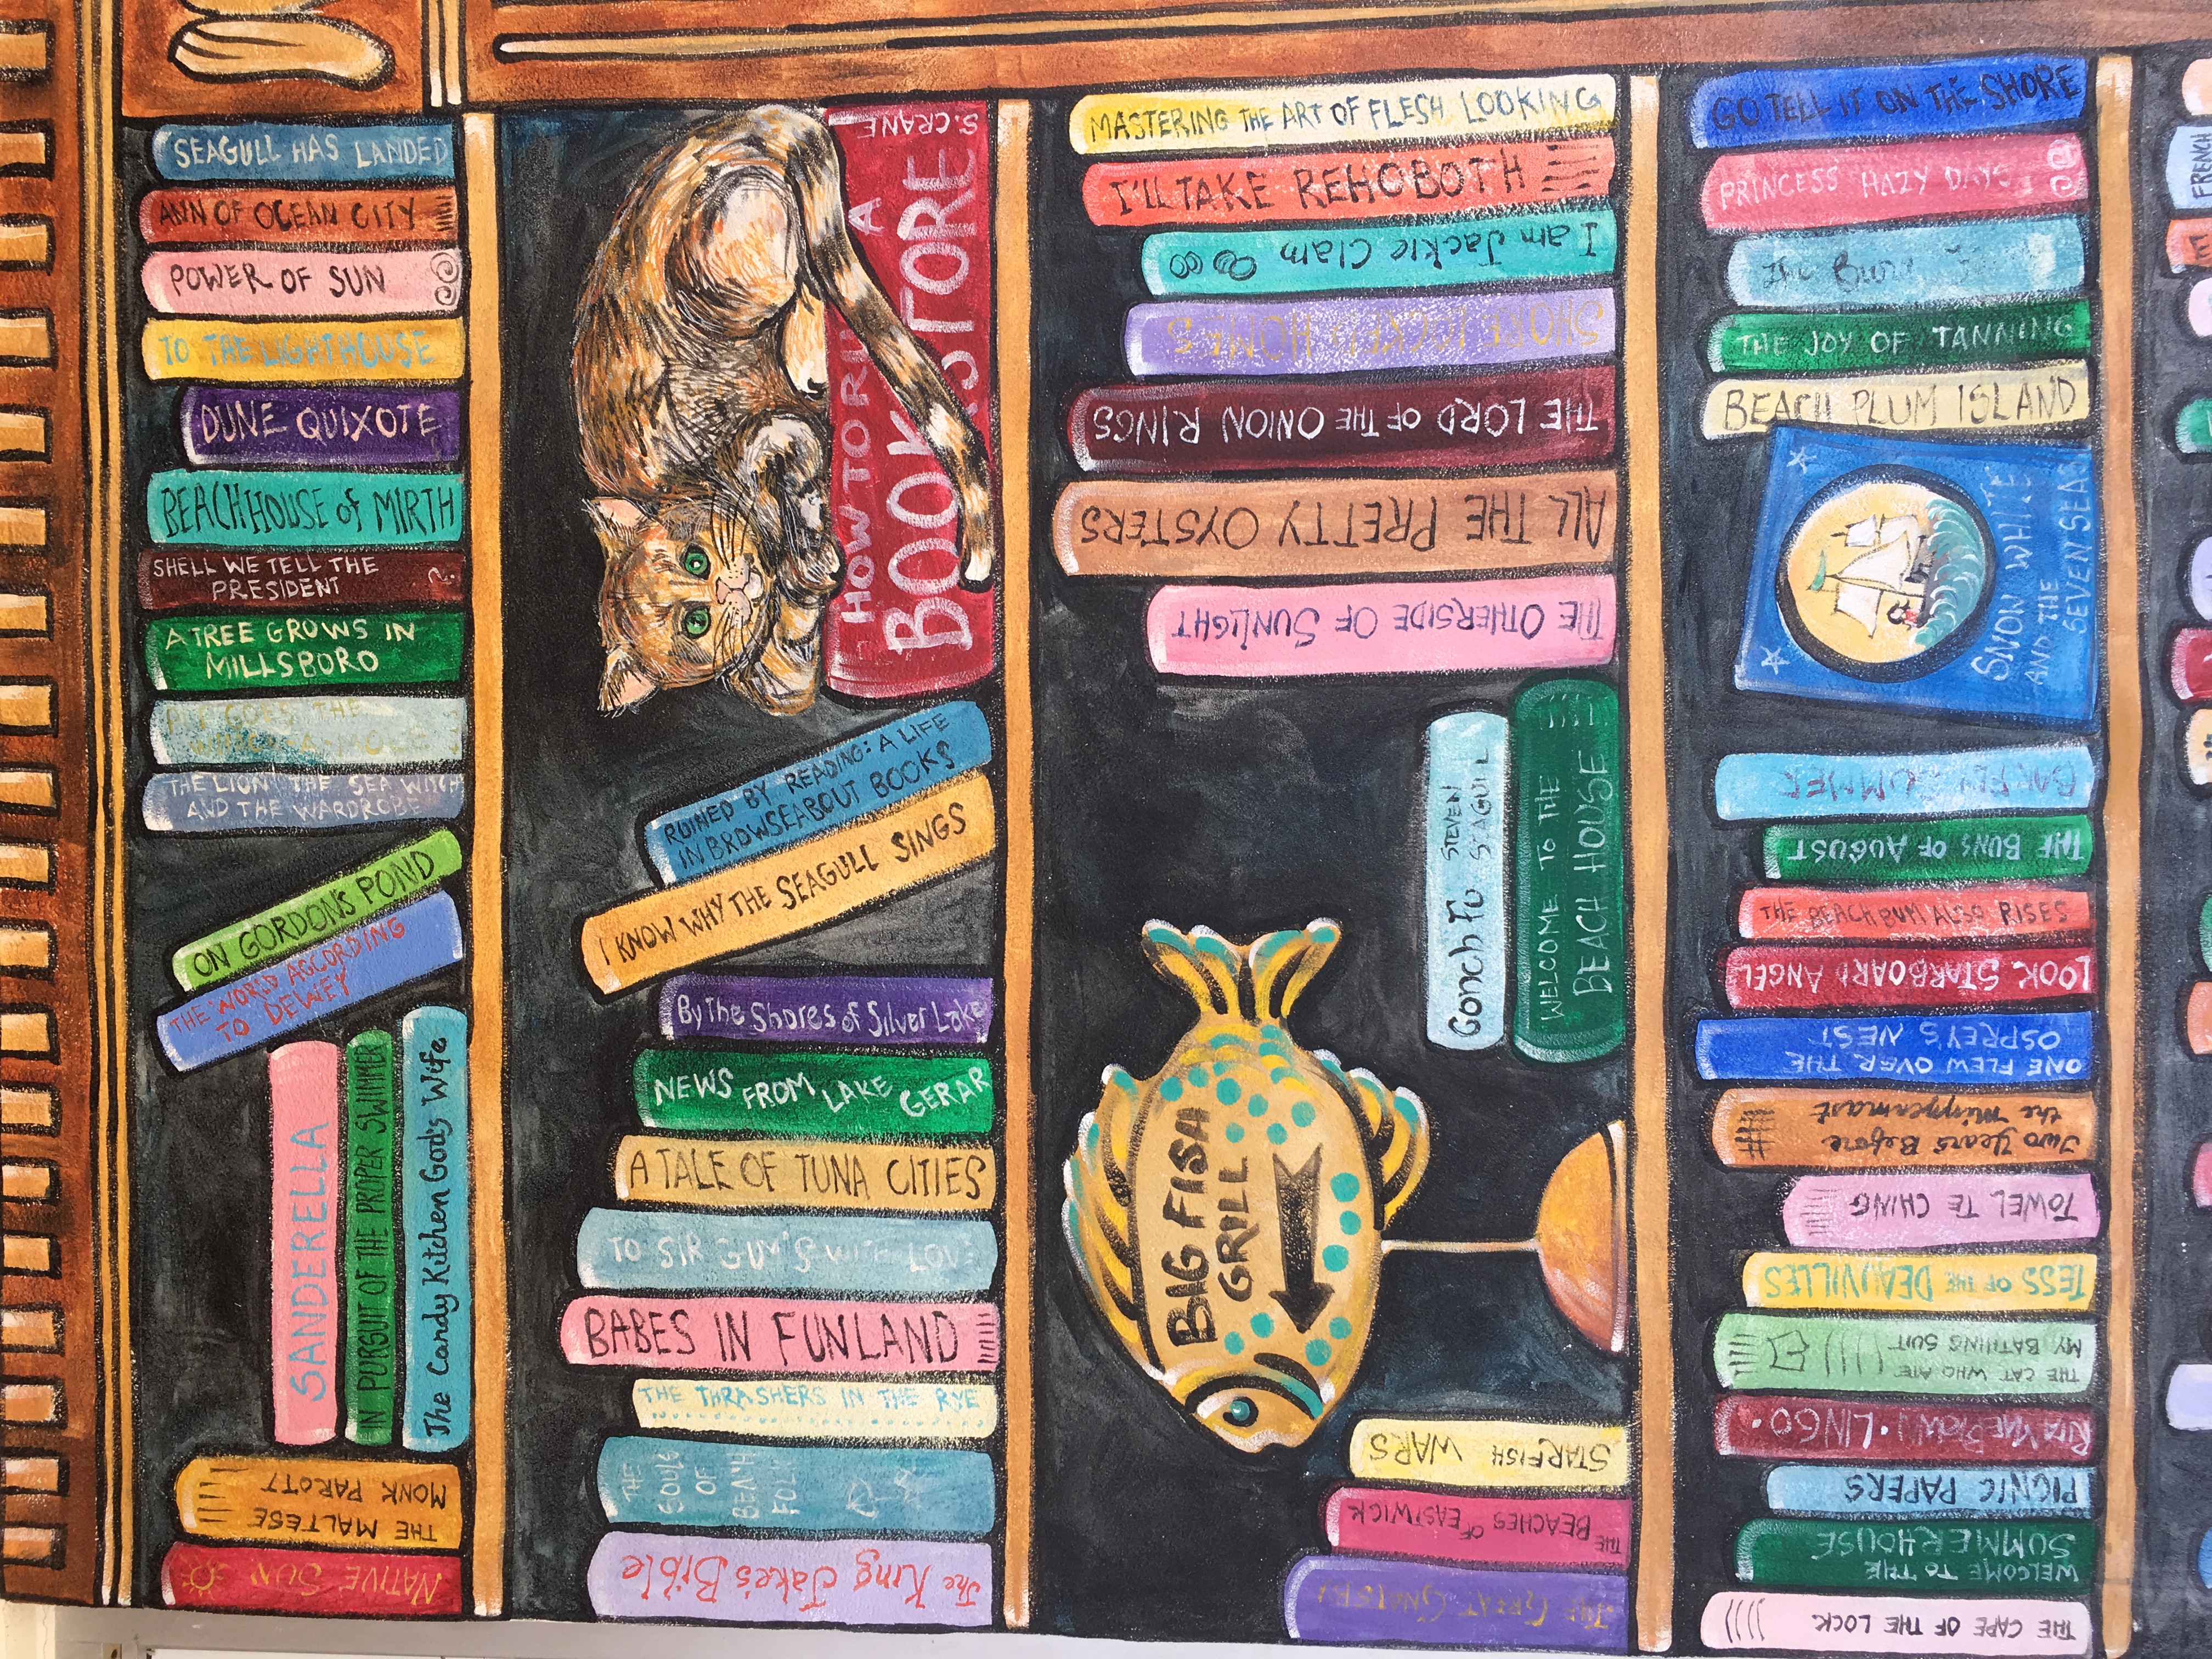 SEAGULL HAS LANDED
ANN OF OCEAN CITY
POWER OF SUN
TO THE LIGHTHOUSE
DUNE QUIXOTE
BEACH HOUSE of MIRTH
SHELL WE TELL THE
PRESIDENT
A TREE GROWS IN
MILLSBORO
GOES THE
THE LION THE SEA WITCH
AND THE WARDROBE
ON GORDON'S POND
THE WORLD ACCORDING
TO DEWEY
SANDERELLA
IN PURSUIT OF THE PROPER SWIMMER
The Candy Kitchen God's Wife
THE MALTESE
MONK PAROTT
NATIVE SUN
HOW TO RUN A
BOOKSTORE
S. CRANE
RUINED BY READING: A LIFE
IN BROWSEABOUT BOOKS
I KNOW WHY THE SEAGULL SINGS
By The Shores of Silver Lake
NEWS FROM LAKE GERAR
A TALE OF TUNA CITIES
TO SIR GUM'S WITH LOVE
BABES IN FUNLAND
THE THRASHERS IN THE RYE
THE
SOULS
OF
BEACH
FOLK
The King Jake's Bible
MASTERING THE ART OF FLESH LOOKING
I'LL TAKE REHOBOTH
I am Jackie Clam
SHORE LOCKED HOMES
THE LORD OF THE ONION RINGS
ALL THE PRETTY OYSTERS
THE OTHERSIDE OF SUNLIGHT
Gonch Fu
STEVEN
SEAGULL
WELCOME TO THE
BEACH HOUSE
BIG FISH
GRILL
STARFISH WARS
THE BEACHES OF EASTWICK
THE GREAT GNATSBY
GO TELL IT ON THE SHORE
PRINCESS HAZY DAYS
The
THE JOY OF TANNING
BEACH PLUM ISLAND
SNOW WHITE
AND THE
SEVEN SEAS
SUMMER
THE BUNS OF AUGUST
THE BEACH BUM ALSO RISES
LOOK STARBOARD ANGEL
ONE FLEW OVER THE
OSPREY'S NEST
Two Years Before
the Mizzenmast
TOWEL TE CHING
TESS OF THE DEAUVILLES
THE CAT WHO ATE
MY BATHING SUIT
RITA MAE BROWN • LINGO •
PICNIC PAPERS
WELCOME TO THE
SUMMERHOUSE
THE CAPE OF THE LOCK
FRENCH